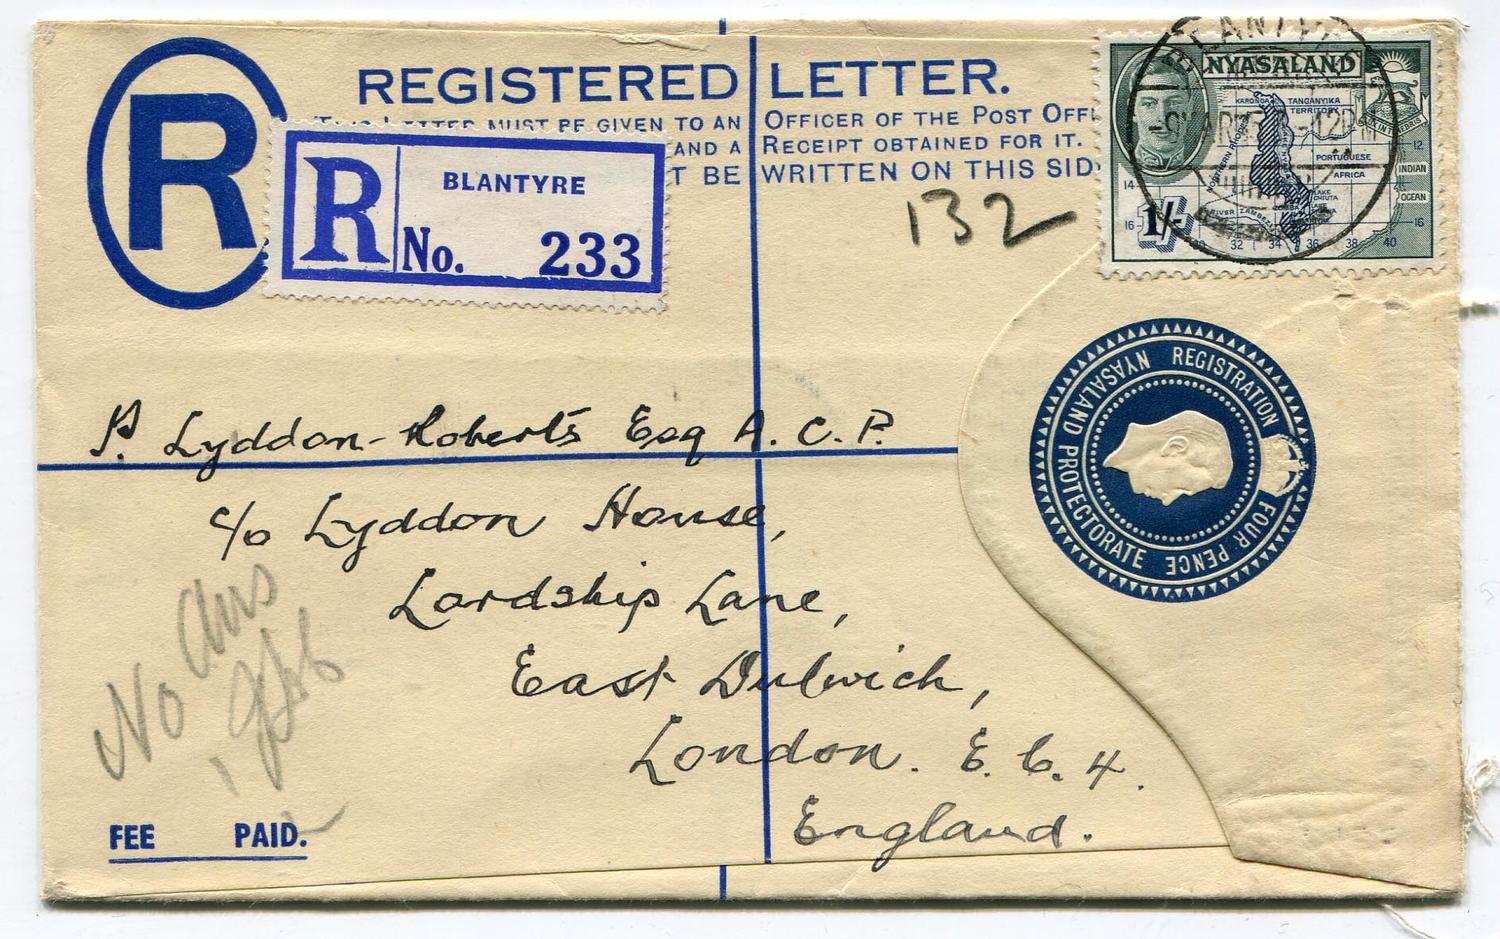 R
REGISTERED LETTER.
THIS LETTER MUST BE GIVEN TO AN OFFICER OF THE POST OFFI
AND A RECEIPT OBTAINED FOR IT.
T BE WRITTEN ON THIS SID
R BLANTYRE
No. 233
132
NYASALAND
KARONGA TANGANYIKA
TERRITORY
PORTUGUESE
AFRICA
INDIAN
OCEAN
LAKE
CHIUTA
RIVER ZAMBESI
12
14
16
16
32 34 36 38 40
1/-
BLANTYRE
NYASALAND PROTECTORATE
REGISTRATION FOUR PENCE
P. Lyddon-Roberts Esq A.C.P.
c/o Lyddon House,
Lordship Lane,
East Dulwich,
London. E.C.4.
England.
No Ans
FEE PAID.